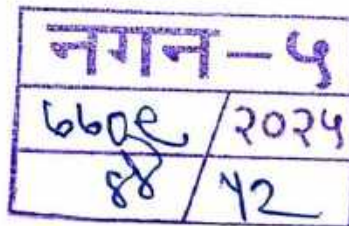 नगन-५
७७०९/२०२५
४४/५२